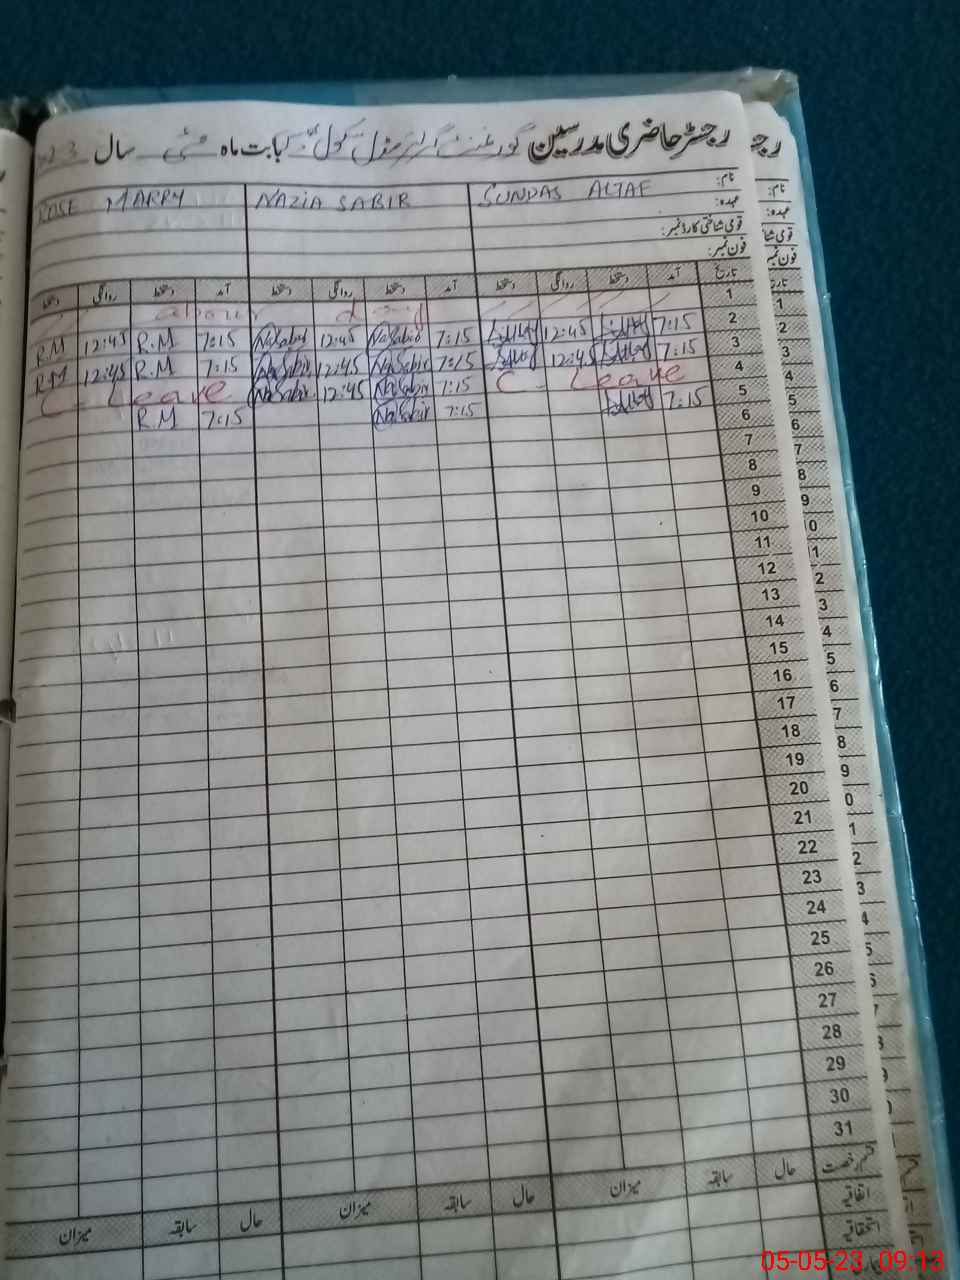 رجسٹر حاضری مدرسین گورنمنٹ گرلز ماڈل سکول بابت ماہ مئی سال
نام: SUNDAS ALTAF NAZIA SABIR ROSE MARRY
عہدہ:
قومی شناختی کارڈ نمبر:
فون نمبر:
تاریخ آمد دستخط روانگی دستخط آمد دستخط روانگی دستخط آمد دستخط روانگی دستخط
1 Labour
2 7:15 12:45 7:15 NaSabir 12:45 NaSabir 7:15 R.M 12:45 R.M
3 7:15 12:45 7:15 NaSabir 12:45 NaSabir 7:15 R.M 12:45 R.M
4 C- Leave 7:15 NaSabir 12:45 NaSabir C- Leave
5 7:15 7:15 NaSabir 7:15 R.M
6
7
8
9
10
11
12
13
14
15
16
17
18
19
20
21
22
23
24
25
26
27
28
29
30
31
قسم رخصت حال سابقہ میزان حال سابقہ میزان حال سابقہ میزان
اتفاقیہ
استحقاقیہ
05-05-23 09:13